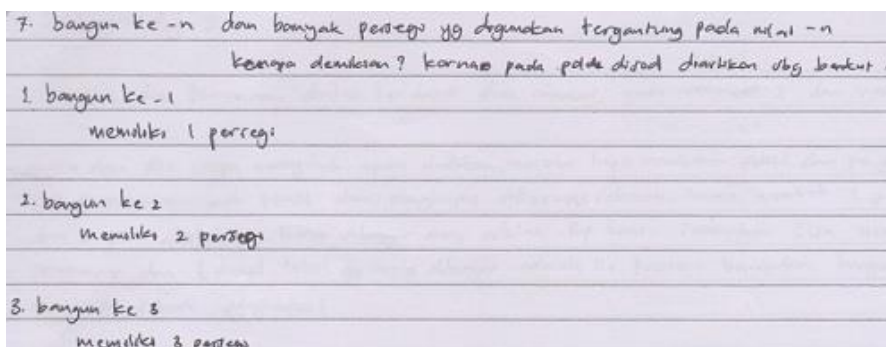 7. bangun ke -n dan banyak persegi yg digunakan tergantung pada nilai -n
kenapa demikian? karnas pada polda disoal diartikan sbg berikut
1. bangun ke -1
memiliki 1 persegi
2. bangun ke 2
memiliki 2 persegi
3. bangun ke 3
memiliki 3 persegi